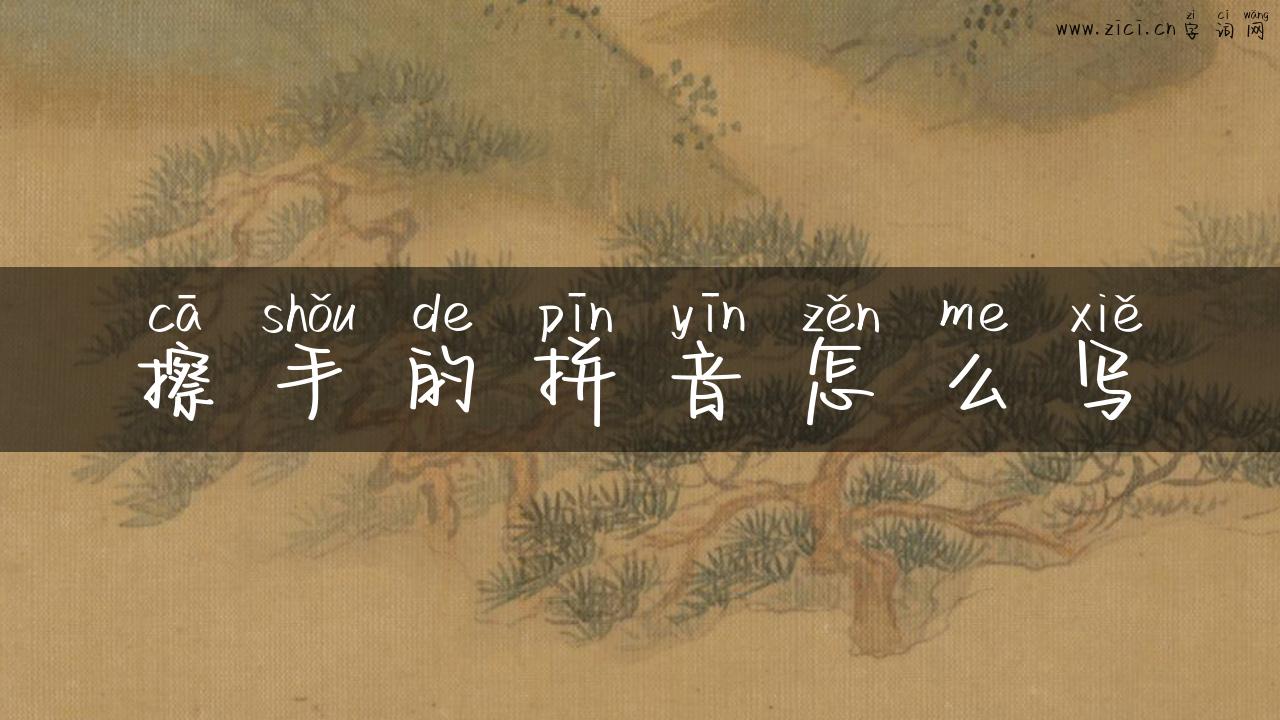 zì cí wǎng
www.zici.cn字词网
cā shǒu de pīn yīn zěn me xiě
擦手的拼音怎么写